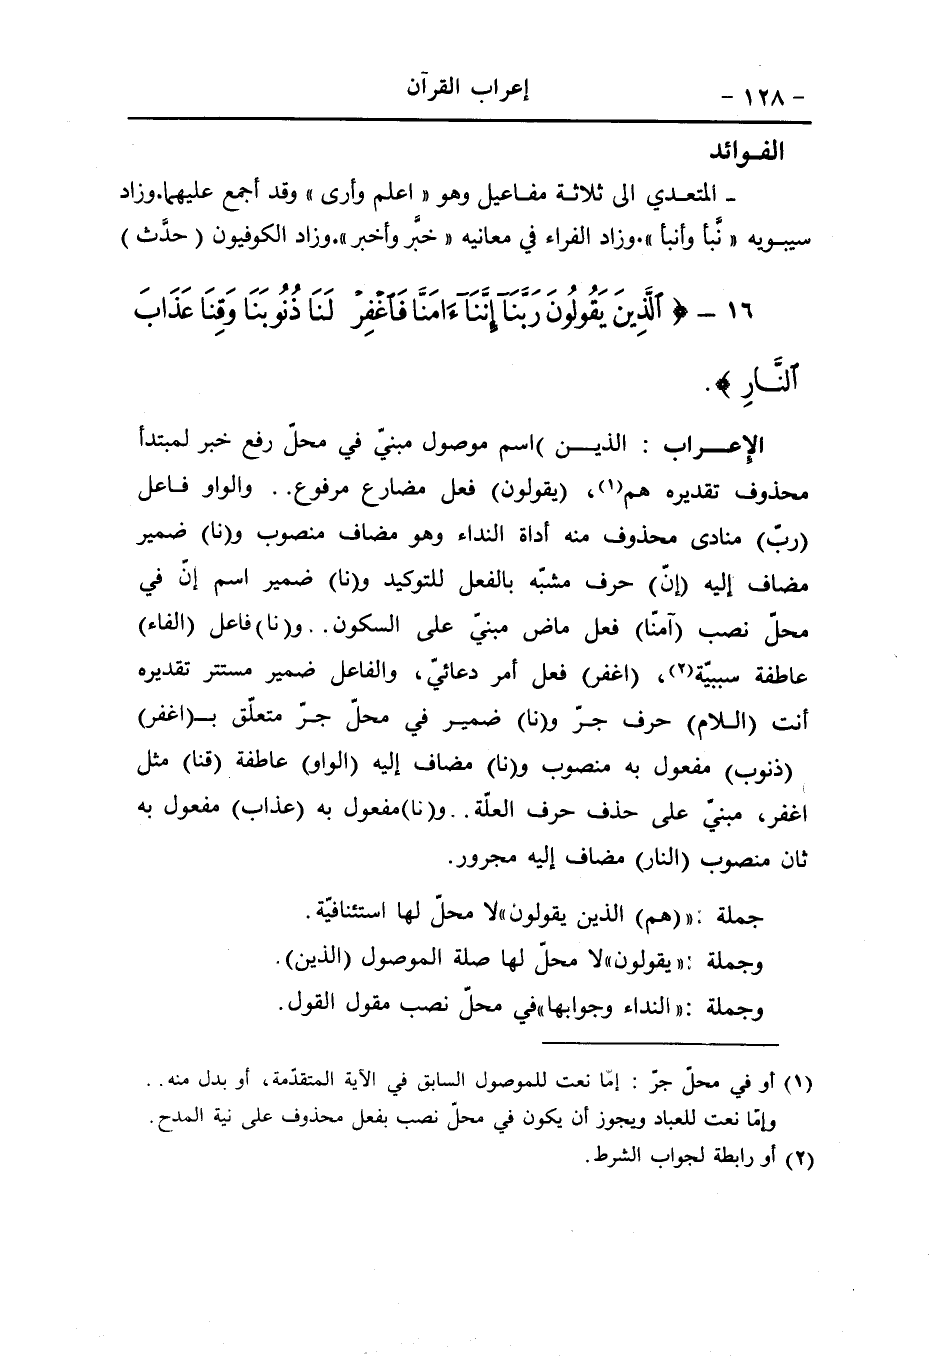 - ١٢٨ -
إعراب القرآن
الفـوائد
ـ المتعـدي الى ثلاثـة مفـاعيل وهو « اعلم وأرى » وقد أجمع عليهما.وزاد
سيبويه « نَّبأ وأنبأ ».وزاد الفراء في معانيه « خبَّر وأخبر».وزاد الكوفيون ( حدَّث )
١٦ - ﴿ ٱلَّذِينَ يَقُولُونَ رَبَّنَآ إِنَّنَآ ءَامَنَّا فَٱغْفِرْ لَنَا ذُنُوبَنَا وَقِنَا عَذَابَ
ٱلنَّـارِ ﴾.
الإعـــراب : الذيـــن )اسم موصول مبنيّ في محلّ رفع خبر لمبتدأ
محذوف تقديره هم(١)، (يقولون) فعل مضارع مرفوع.. والواو فـاعل
(ربّ) منادى محذوف منه أداة النداء وهو مضاف منصوب و(نا) ضمير
مضاف إليه (إنّ) حرف مشبّه بالفعل للتوكيد و(نا) ضمير اسم إنّ في
محلّ نصب (آمنّا) فعل ماض مبنيّ على السكون.. و(نا)فاعل (الفاء)
عاطفة سببيّة(٢)، (اغفر) فعل أمر دعائيّ، والفاعل ضمير مستتر تقديره
أنت (الـلام) حرف جـرّ و(نا) ضميـر في محلّ جـرّ متعلّق بــ(اغفر)
(ذنوب) مفعول به منصوب و(نا) مضاف إليه (الواو) عاطفة (قنا) مثل
اغفر، مبنيّ على حذف حرف العلّة.. و(نا)مفعول به (عذاب) مفعول به
ثان منصوب (النار) مضاف إليه مجرور.
جملة :«(هم) الذين يقولون»لا محلّ لها استئنافيّة.
وجملة :«يقولون»لا محلّ لها صلة الموصول (الذين).
وجملة :«النداء وجوابها»في محلّ نصب مقول القول.
(١) أو في محلّ جرّ : إمّا نعت للموصول السابق في الآية المتقدّمة، أو بدل منه..
وإمّا نعت للعباد ويجوز أن يكون في محلّ نصب بفعل محذوف على نية المدح.
(٢) أو رابطة لجواب الشرط.